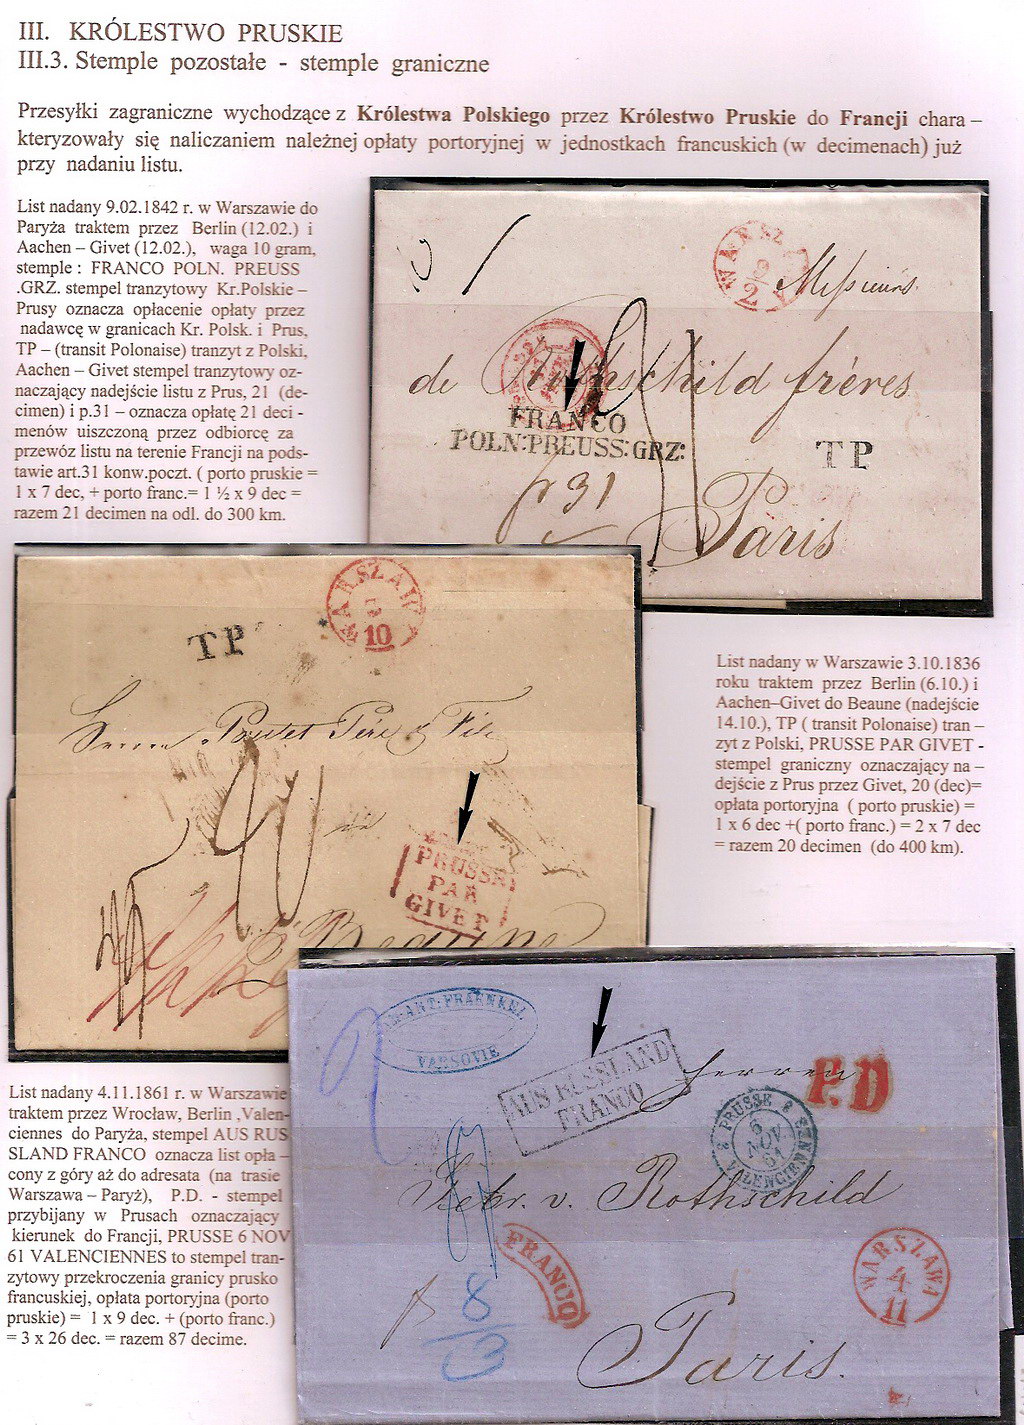 III. KRÓLESTWO PRUSKIE
III.3. Stemple pozostałe - stemple graniczne
Przesyłki zagraniczne wychodzące z Królestwa Polskiego przez Królestwo Pruskie do Francji chara –
kteryzowały się naliczaniem należnej opłaty portoryjnej w jednostkach francuskich (w decimenach) już
przy nadaniu listu.
List nadany 9.02.1842 r. w Warszawie do
Paryża traktem przez Berlin (12.02.) i
Aachen – Givet (12.02.), waga 10 gram,
stemple : FRANCO POLN. PREUSS
.GRZ. stempel tranzytowy Kr.Polskie –
Prusy oznacza opłacenie opłaty przez
nadawcę w granicach Kr. Polsk. i Prus,
TP – (transit Polonaise) tranzyt z Polski,
Aachen – Givet stempel tranzytowy oz-
naczający nadejście listu z Prus, 21 (de-
cimen) i p.31 – oznacza opłatę 21 deci -
menów uiszczoną przez odbiorcę za
przewóz listu na terenie Francji na pods-
tawie art.31 konw.poczt. ( porto pruskie =
1 x 7 dec, + porto franc.= 1 ½ x 9 dec =
razem 21 decimen na odl. do 300 km.
WARSZAWA
9
2
Messieurs
de Rothschild frères
FRANCO
POLN:PREUSS:GRZ:
TP
p 31
Paris
WARSZAWA
3
10
TP
Herrn Poulet Père & Fils
PRUSSE
PAR
GIVET
Beaune
List nadany w Warszawie 3.10.1836
roku traktem przez Berlin (6.10.) i
Aachen–Givet do Beaune (nadejście
14.10.), TP ( transit Polonaise) tran –
zyt z Polski, PRUSSE PAR GIVET -
stempel graniczny oznaczający na –
dejście z Prus przez Givet, 20 (dec)=
opłata portoryjna ( porto pruskie) =
1 x 6 dec +( porto franc.) = 2 x 7 dec
= razem 20 decimen (do 400 km).
List nadany 4.11.1861 r. w Warszawie
traktem przez Wrocław, Berlin ,Valen-
ciennes do Paryża, stempel AUS RUS
SLAND FRANCO oznacza list opła –
cony z góry aż do adresata (na trasie
Warszawa – Paryż), P.D. - stempel
przybijany w Prusach oznaczający
kierunek do Francji, PRUSSE 6 NOV
61 VALENCIENNES to stempel tran-
zytowy przekroczenia granicy prusko
francuskiej, opłata portoryjna (porto
pruskie) = 1 x 9 dec. + (porto franc.)
= 3 x 26 dec. = razem 87 decime.
ANT: FRAENKEL
VARSOVIE
AUS RUSSLAND
FRANCO
Herren
P.D
PRUSSE
6
NOV
61
VALENCIENNES
Gebr. v. Rothschild
FRANCO
WARSZAWA
4
11
8
Paris.